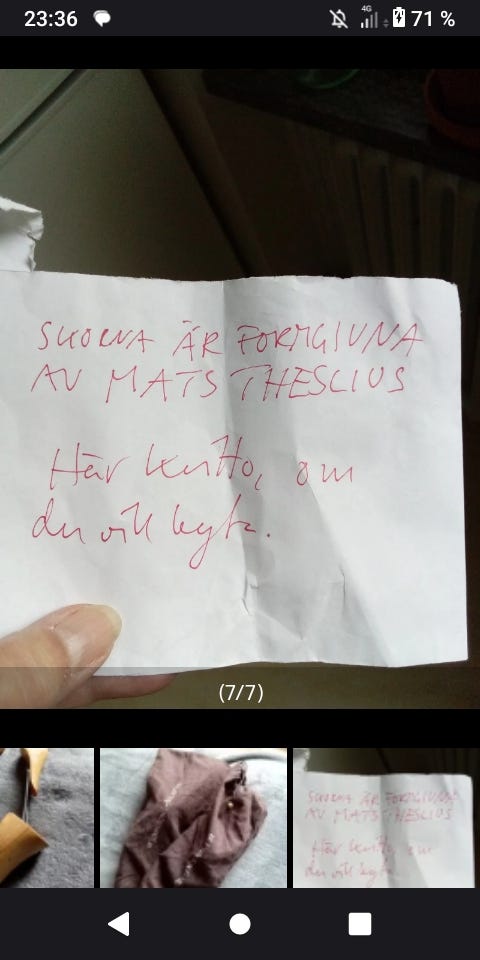 23:36 4G 71 %
SKORNA ÄR FORMGIVNA
AV MATS THESELIUS
Här kvitto, om
du vill byta.
(7/7)
SKORNA ÄR FORMGIVNA
AV MATS THESELIUS
Här kvitto, om
du vill byta.